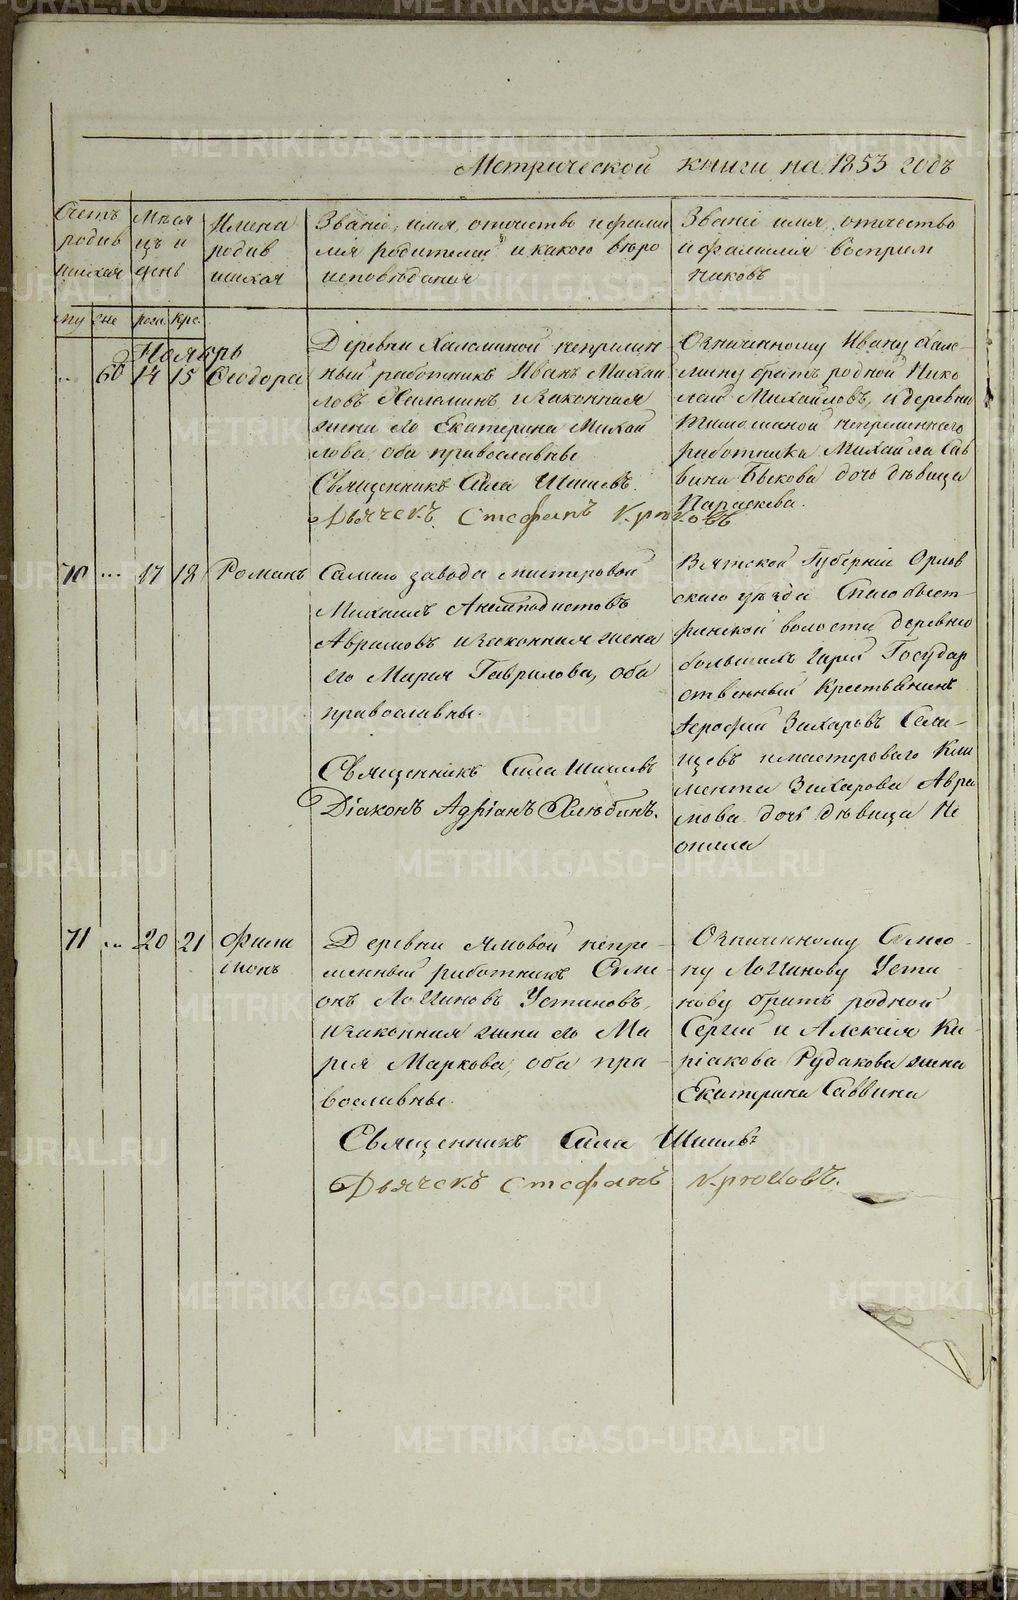 Метрической книги на 1853 годъ
Счетъ родив шихся
Мѣся цъ и день
Имена родив шихся
Званіе, имя, отчество и фами лія родителей и какого вѣро исповѣданія
Званіе имя, отчество и фамилія воспріем никовъ
му
же
рож.
кре.
Ноябрь
..
60
14
15
Ѳеодора
Деревни Халеминой непремен
ный работникъ Иванъ Михаи
ловъ Халеминъ и законная
жена его Екатерина Михаи
лова, оба православные
Священникъ Сила Шишевъ.
Дьячекъ Стефанъ Крюковъ
Означенному Ивану Хале-
мину братъ родной Нико
лай Михайловъ, и деревни
непременнаго
работника Михаила Сав
вина Быкова дочь дѣвица
Параскева.
70
...
17
18
Романъ
Самаго завода мастеровой
Михаилъ Анемподистовъ
Аврамовъ и законная жена
его Марья Гаврилова, оба
православные.
Священникъ Сила Шишевъ
Діаконъ Адріанъ Хлѣбинъ.
Вятской Губерніи Орлов
скаго уѣзда Спасобыст-
рицкой волости деревни
большихъ Государ
ственный Крестьянинъ
Ерофей Захаровъ Сели-
цовъ и мастероваго Кли
мента Захарова Авра
мова дочь дѣвица Не
онила
71
...
20
21
Фили
монъ
Деревни Ямовой непре-
менный работникъ Симе
онъ Логиновъ Устиновъ,
и законная жена его Ма
рія Маркова, оба пра-
вославные.
Священникъ Сила Шишевъ
Дьячекъ Стефанъ Крюковъ.
Означенному Симео-
ну Логинову Усти-
нову братъ родной
Сергій и Алексія Ки-
ріакова Рудакова жена
Екатерина Саввина
METRIKI.GASO-URAL.RU